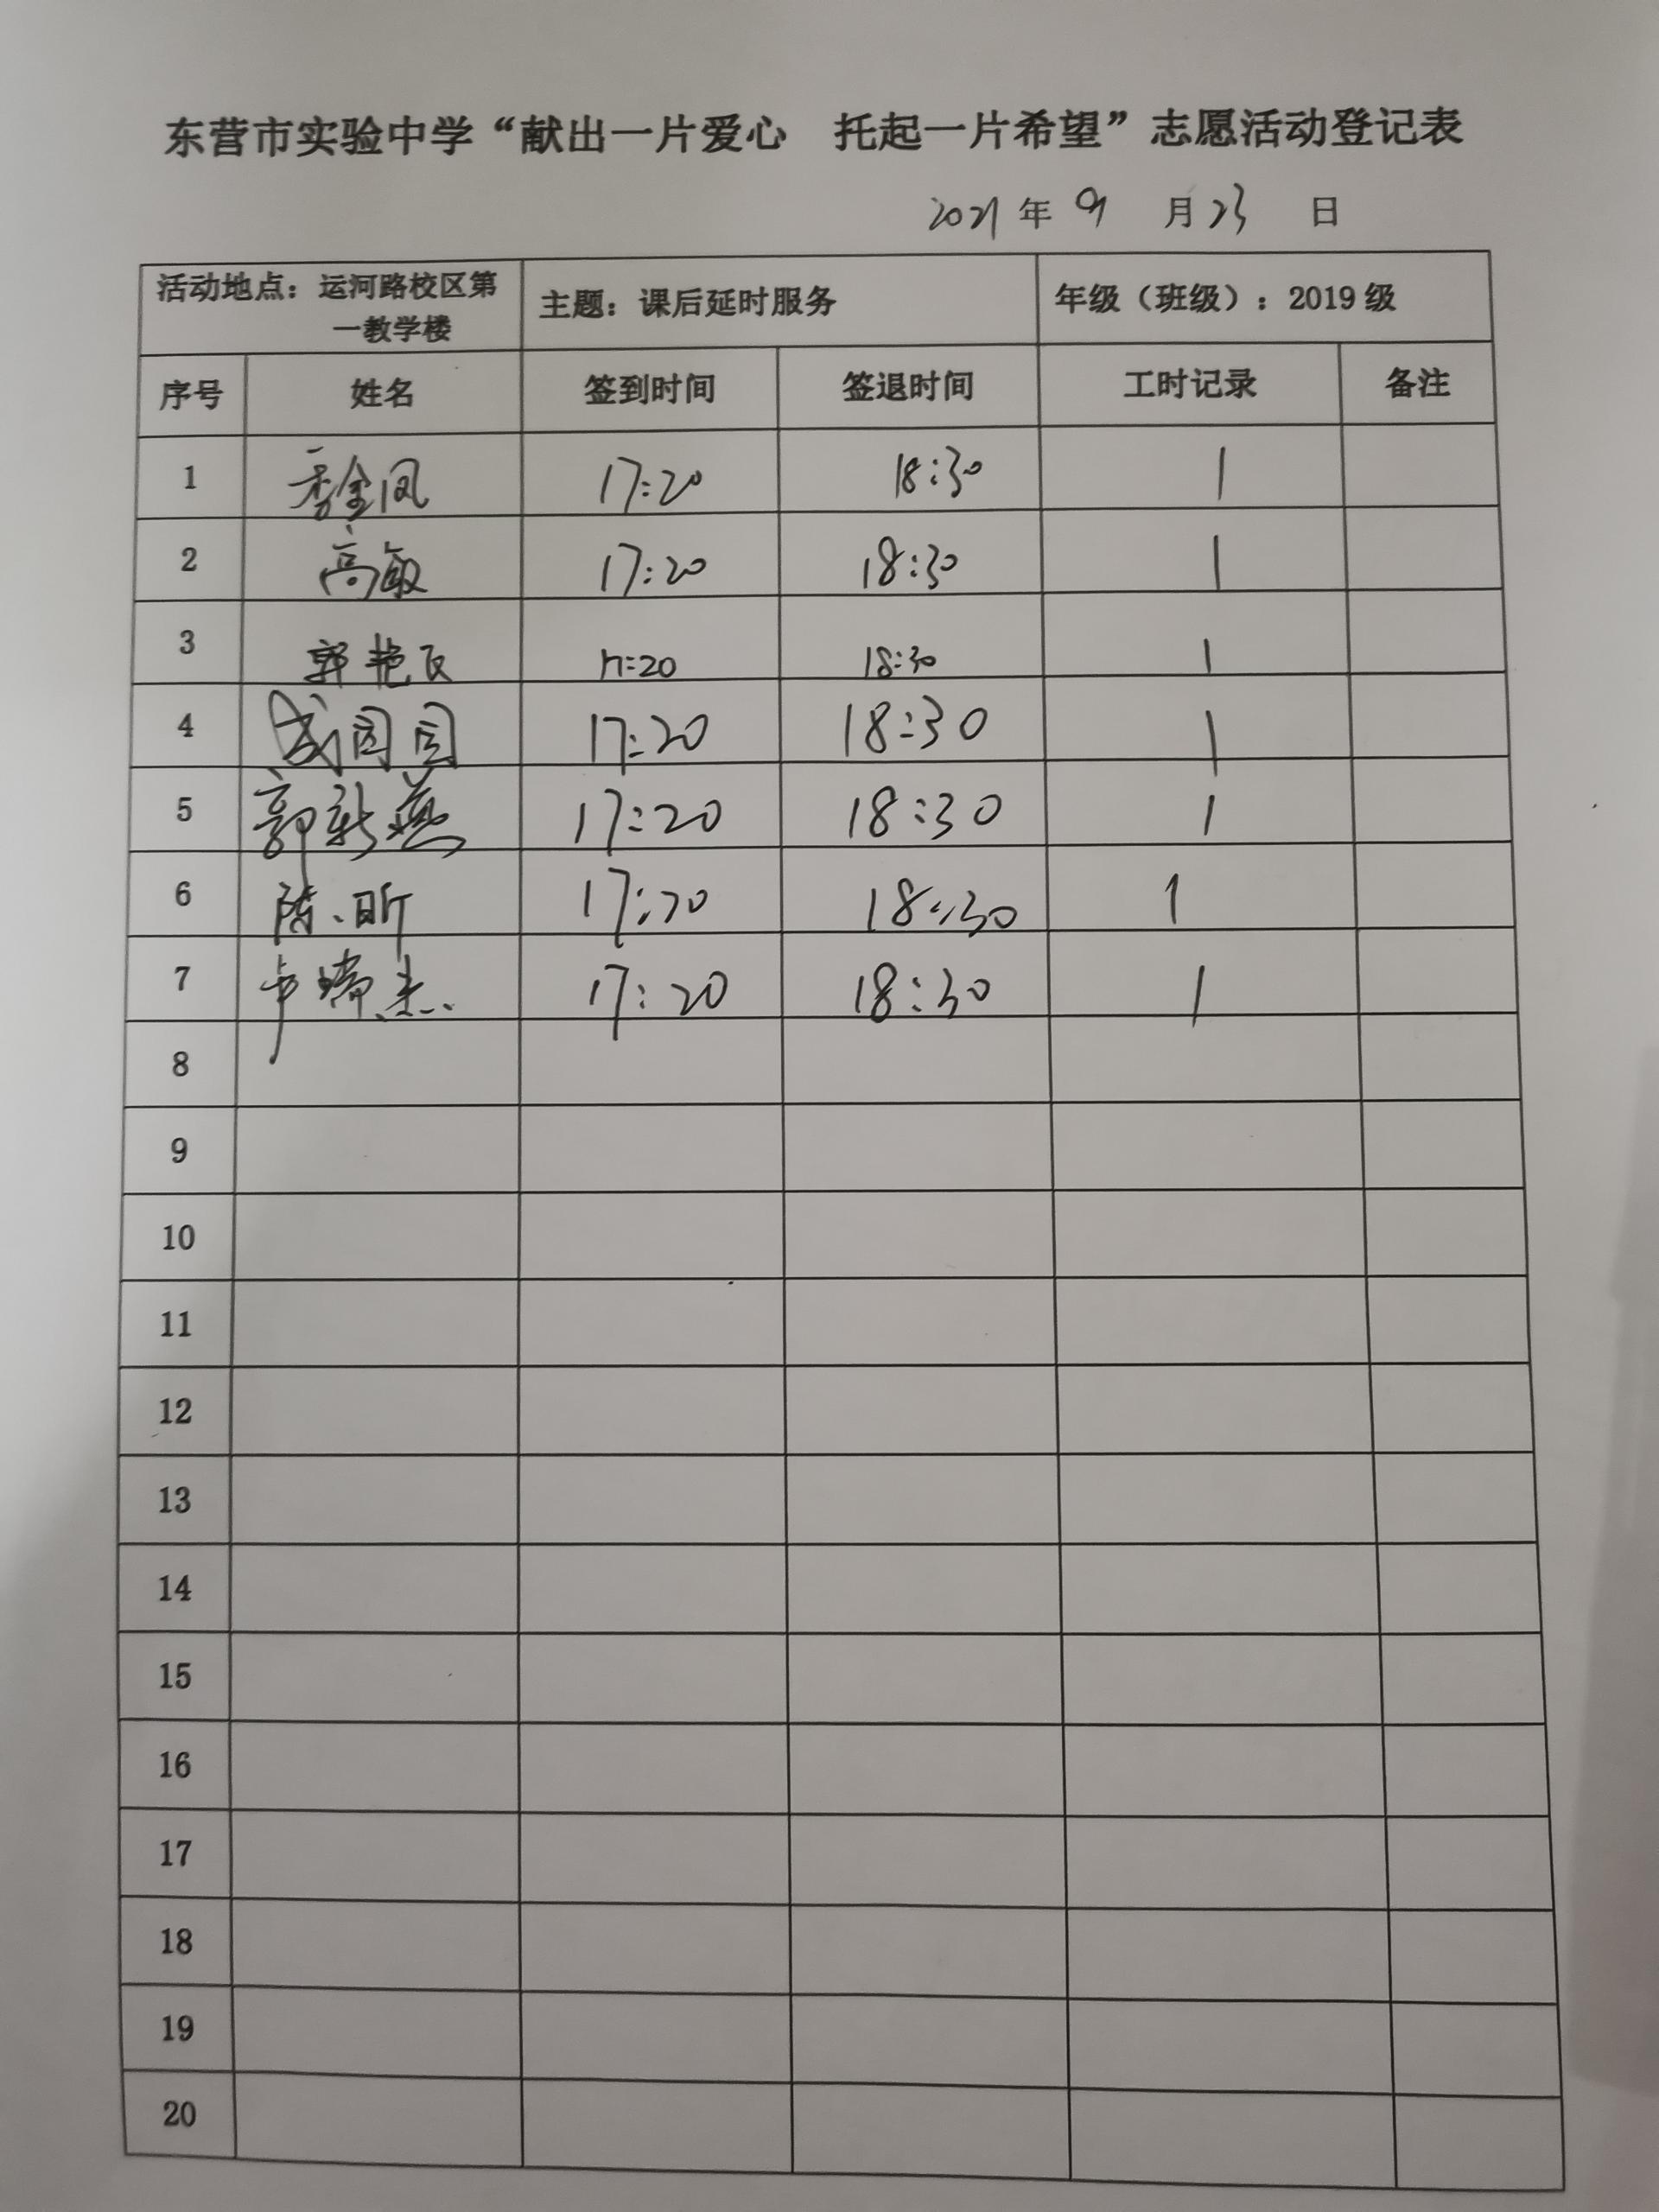 东营市实验中学“献出一片爱心 托起一片希望”志愿活动登记表
2021年 9 月 23 日
活动地点：运河路校区第一教学楼 主题：课后延时服务 年级（班级）：2019级
序号 姓名 签到时间 签退时间 工时记录 备注
1 季金凤 17:20 18:30 1
2 高敏 17:20 18:30 1
3 郭艳 17:20 18:30 1
4 园园 17:20 18:30 1
5 郭新燕 17:20 18:30 1
6 陈昕 17:20 18:30 1
7 17:20 18:30 1
8
9
10
11
12
13
14
15
16
17
18
19
20